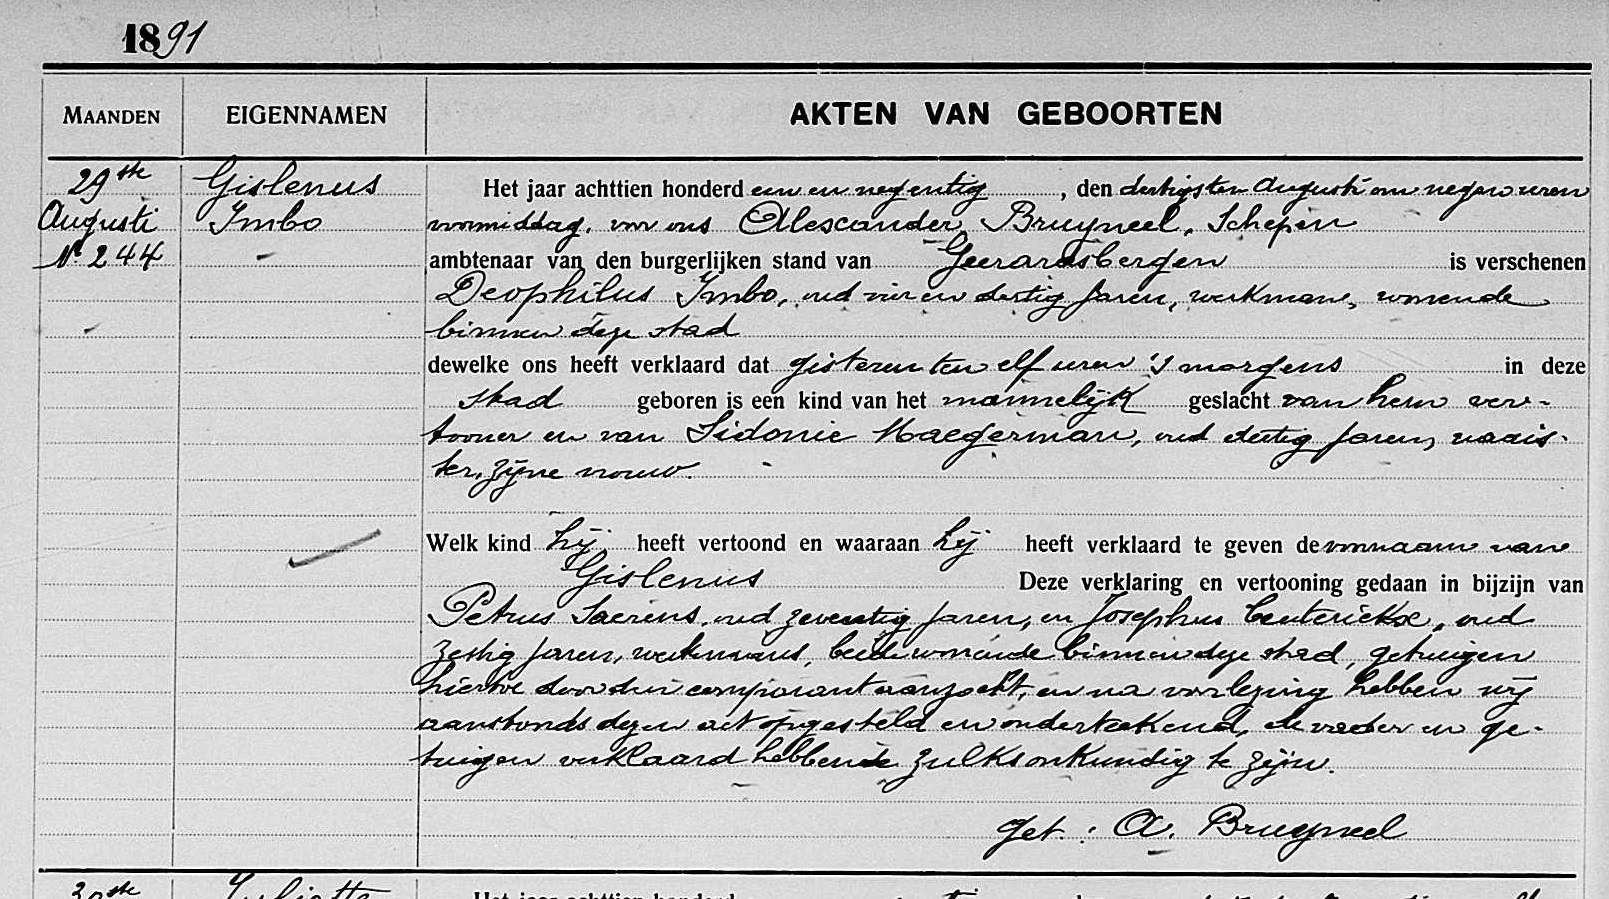 1891
MAANDEN EIGENNAMEN AKTEN VAN GEBOORTEN
29ste Gislenus Het jaar achttien honderd een en negentig, den dertigsten Augusti om negen uren
Augusti Imbo voormiddag, voor ons Alexander Bruyneel, Schepen
Nr 244 ambtenaar van den burgerlijken stand van Geerardsbergen is verschenen
Deophilus Imbo, oud vier en dertig jaren, werkman, wonende
binnen deze stad
dewelke ons heeft verklaard dat gisteren ten elf uren 's morgens in deze
stad geboren is een kind van het mannelijk geslacht van hem ver-
tooner en van Sidonie Haegerman, oud dertig jaren, naais-
ter, zijne vrouw.
Welk kind hij heeft vertoond en waaraan hij heeft verklaard te geven de voornaam van
Gislenus Deze verklaring en vertooning gedaan in bijzijn van
Petrus Saerens, oud zeventig jaren, en Josephus Centerickx, oud
zestig jaren, werkmans, beide wonende binnen deze stad, getuigen
hiertoe door den comparant aanzocht, en na voorlezing hebben wij
aanstonds dezen act opgesteld en onderteekend, de vader en ge-
tuigen verklaard hebbende zulks onkundig te zijn.
get. : A. Bruyneel
30ste Juliette Het jaar achttien honderd